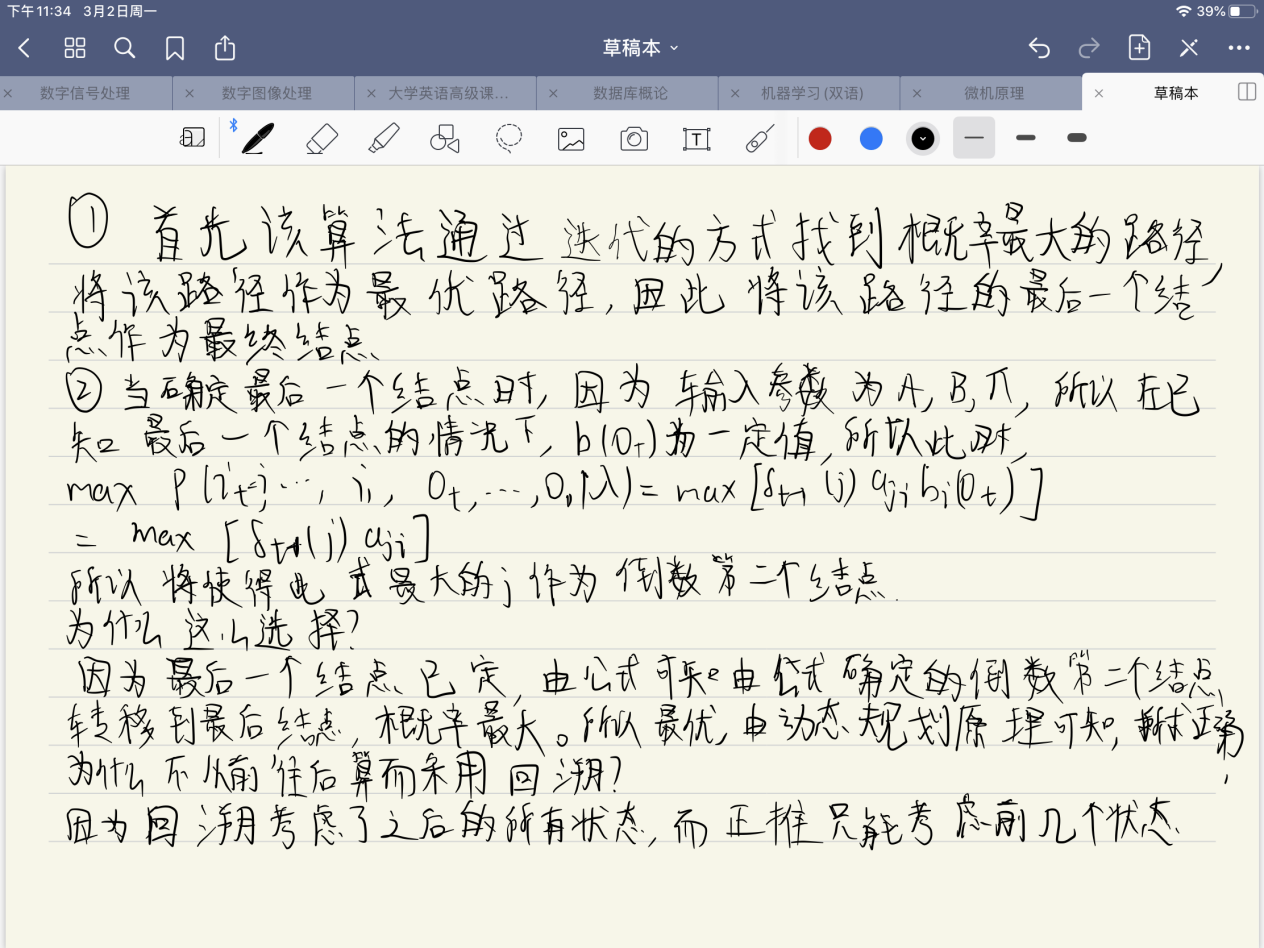 下午11:34 3月2日周一
39%
草稿本
数字信号处理
数字图像处理
大学英语高级课...
数据库概论
机器学习(双语)
微机原理
草稿本
① 首先该算法通过迭代的方式找到概率最大的路径,
将该路径作为最优路径,因此将该路径的最后一个结
点作为最终结点.
② 当确定最后一个结点时,因为输入参数为A,B,π,所以在已
知最后一个结点的情况下,b(Ot)为一定值,所以此时,
max P(it=j,..., i1, Ot,...,O1|λ)= max [δt-1(j) aji bi(Ot)]
= max [δt-1(j) aji]
所以将使得此式最大的j作为倒数第二个结点.
为什么这么选择?
因为最后一个结点已定,由公式可知由公式确定的倒数第二个结点,
转移到最后结点,概率最大。所以最优,由动态规划原理可知,正确,
为什么不从前往后算而采用回溯?
因为回溯考虑了之后的所有状态,而正推只能考虑前几个状态.